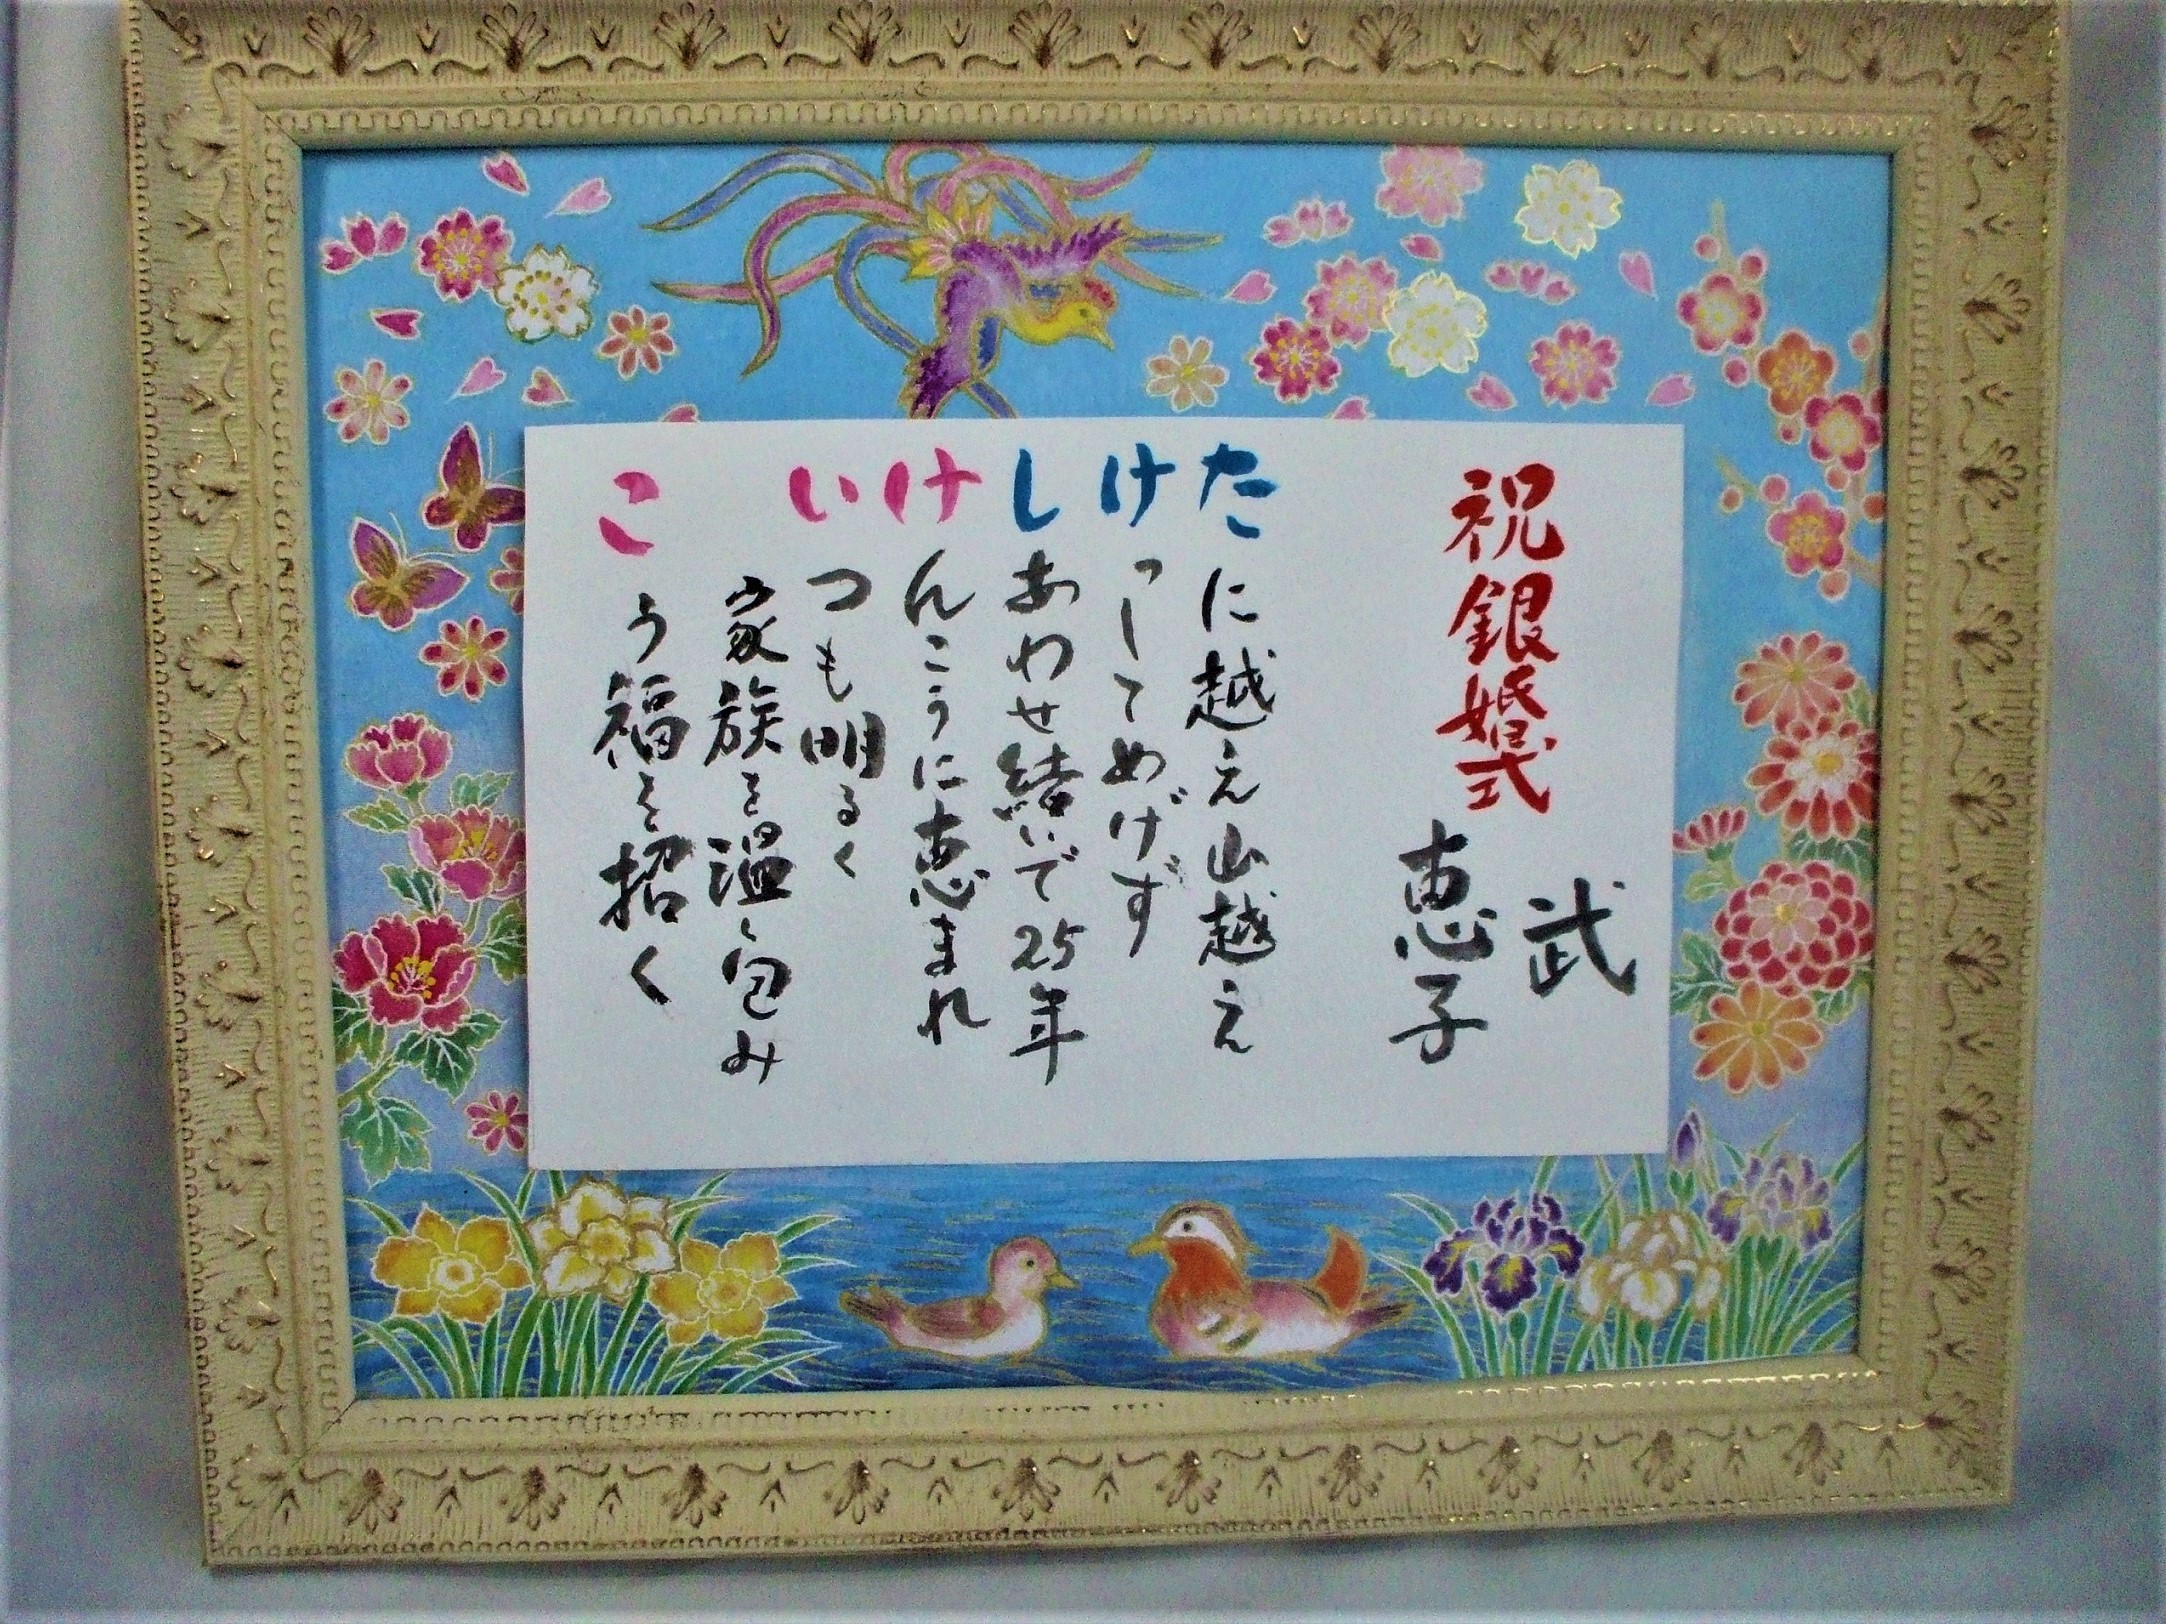 祝銀婚式
武
恵子
たに越え山越え
けっしてめげず
しあわせ結いで25年
けんこうに恵まれ
いつも明るく
家族を温く包み
こう福を招く